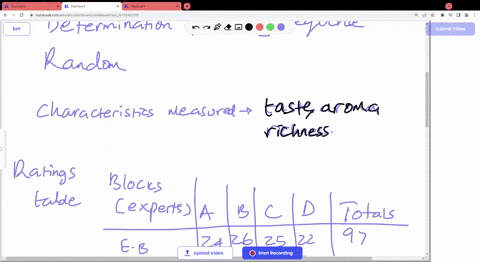 Exit
Submit Video
Determination
Random
Characteristics measured → taste, aroma
richness.
Ratings
table
Blocks
(experts) A B C D Totals
E.B 24 26 25 22 97
Upload Video
Start Recording